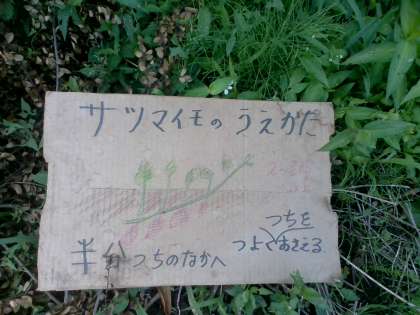 サツマイモのうえかた
つちを
つよくおさえる
半分つちのなかへ